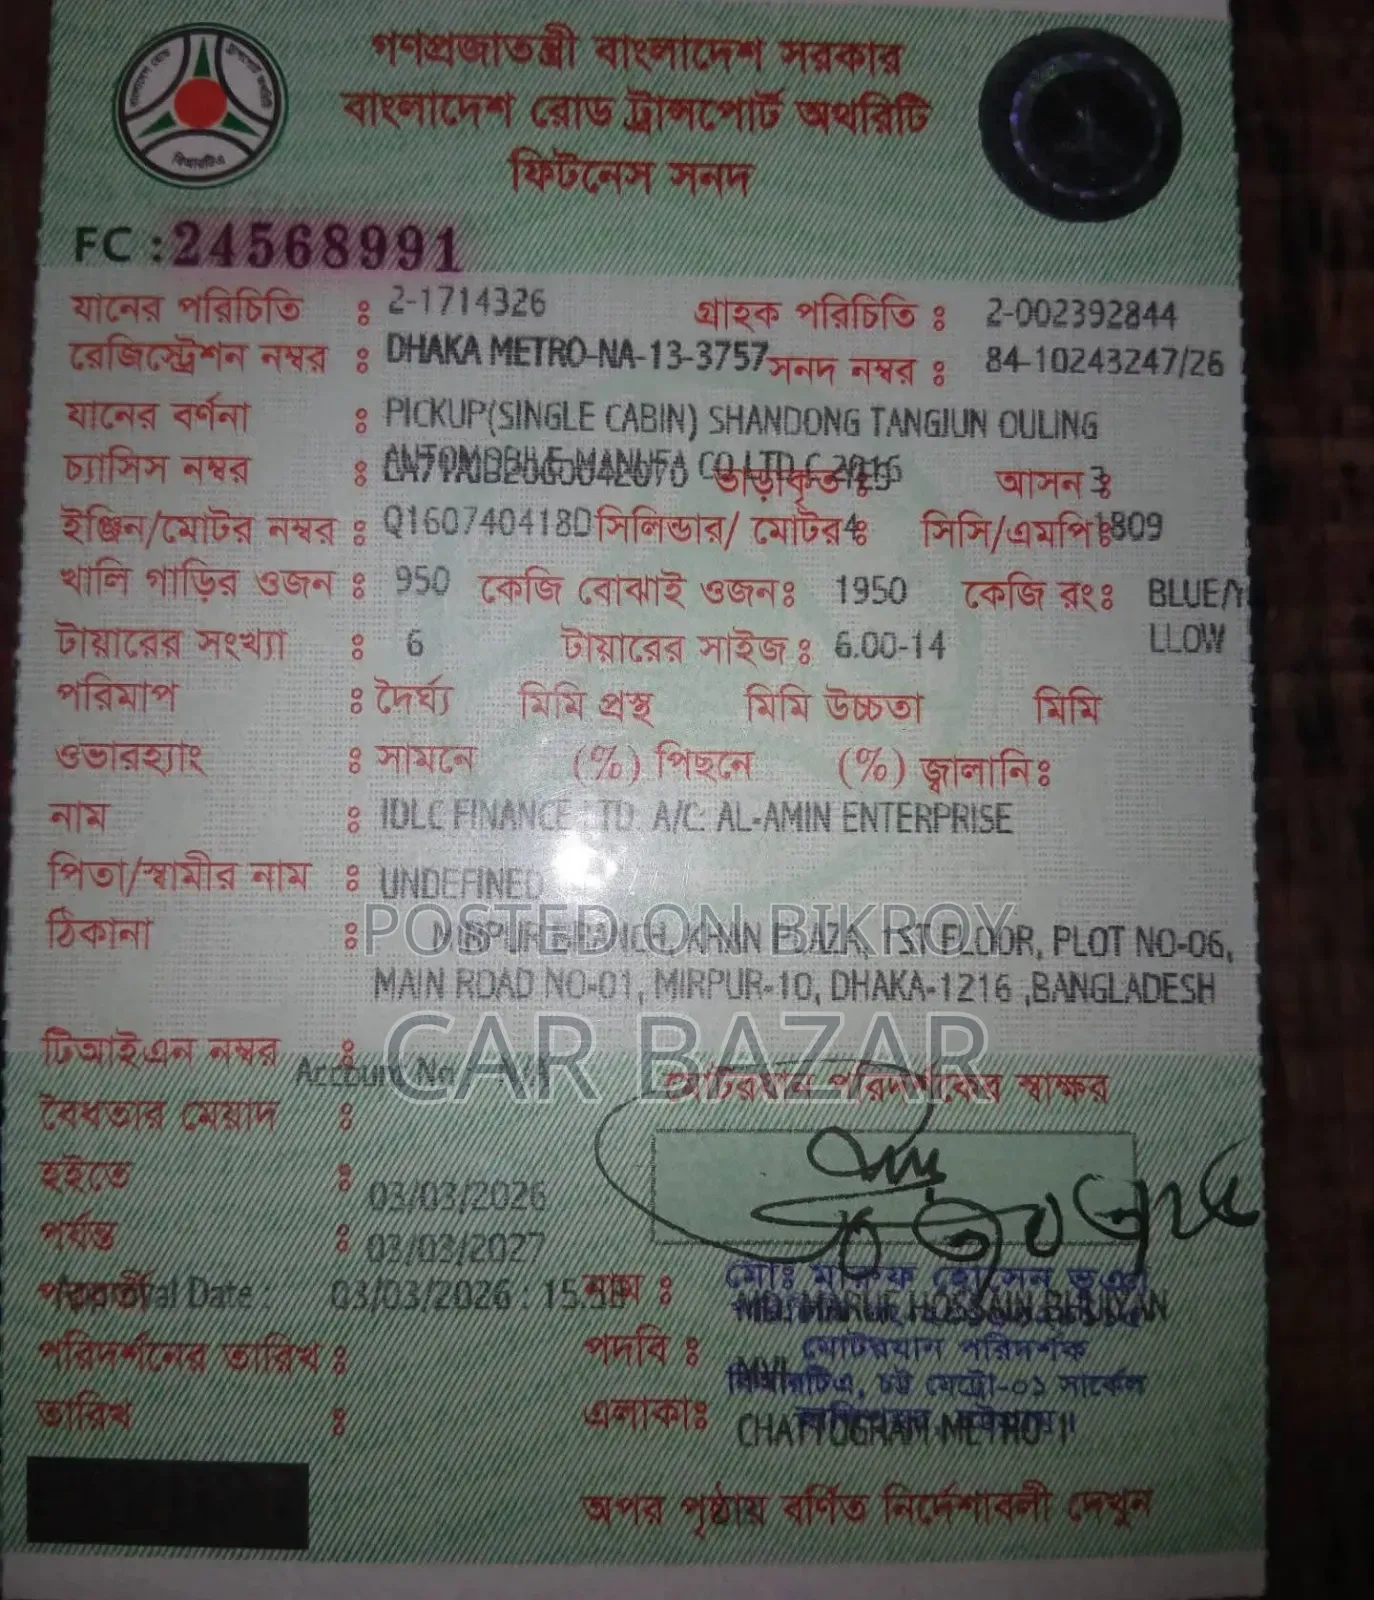 গণপ্রজাতন্ত্রী বাংলাদেশ সরকার
বাংলাদেশ রোড ট্রান্সপোর্ট অথরিটি
ফিটনেস সনদ
বিআরটিএ
FC : 24568991
যানের পরিচিতি : 2-1714326 গ্রাহক পরিচিতি : 2-002392844
রেজিস্ট্রেশন নম্বর : DHAKA METRO-NA-13-3757 সনদ নম্বর : 84-10243247/26
যানের বর্ণনা : PICKUP(SINGLE CABIN) SHANDONG TANGJUN OULING
চ্যাসিস নম্বর : CO LTD C 2016 ভাড়াকৃত : আসন : 3
ইঞ্জিন/মোটর নম্বর : Q160740418D সিলিন্ডার/ মোটর : 4 সিসি/এমপি : 1809
খালি গাড়ির ওজন : 950 কেজি বোঝাই ওজন: 1950 কেজি রং: BLUE/Y
LLOW
টায়ারের সংখ্যা : 6 টায়ারের সাইজ : 6.00-14
পরিমাপ : দৈর্ঘ্য মিমি প্রস্থ মিমি উচ্চতা মিমি
ওভারহ্যাং : সামনে (%) পিছনে (%) জ্বালানি:
নাম : IDLC FINANCE LTD. A/C: AL-AMIN ENTERPRISE
পিতা/স্বামীর নাম : UNDEFINED
POSTED ON BIKROY
ঠিকানা : BRANCH, 1ST FLOOR, PLOT NO-06,
MAIN ROAD NO-01, MIRPUR-10, DHAKA-1216 ,BANGLADESH
CAR BAZAR
টিআইএন নম্বর :
Account No
মোটরযান পরিদর্শকের স্বাক্ষর
বৈধতার মেয়াদ :
হইতে : 03/03/2026
পর্যন্ত : 03/03/2027
পরবর্তী Date : 03/03/2026 : 15. নাম : মোঃ মারুফ হোসেন ভূঞা
MD. MARUF HOSSAIN BHUIYAN
পরিদর্শনের তারিখ : পদবি : মোটরযান পরিদর্শক
MVI
বিআরটিএ, চট্ট মেট্রো-০১ সার্কেল
তারিখ : এলাকা: CHATTOGRAM METRO-1
অপর পৃষ্ঠায় বর্ণিত নির্দেশাবলী দেখুন